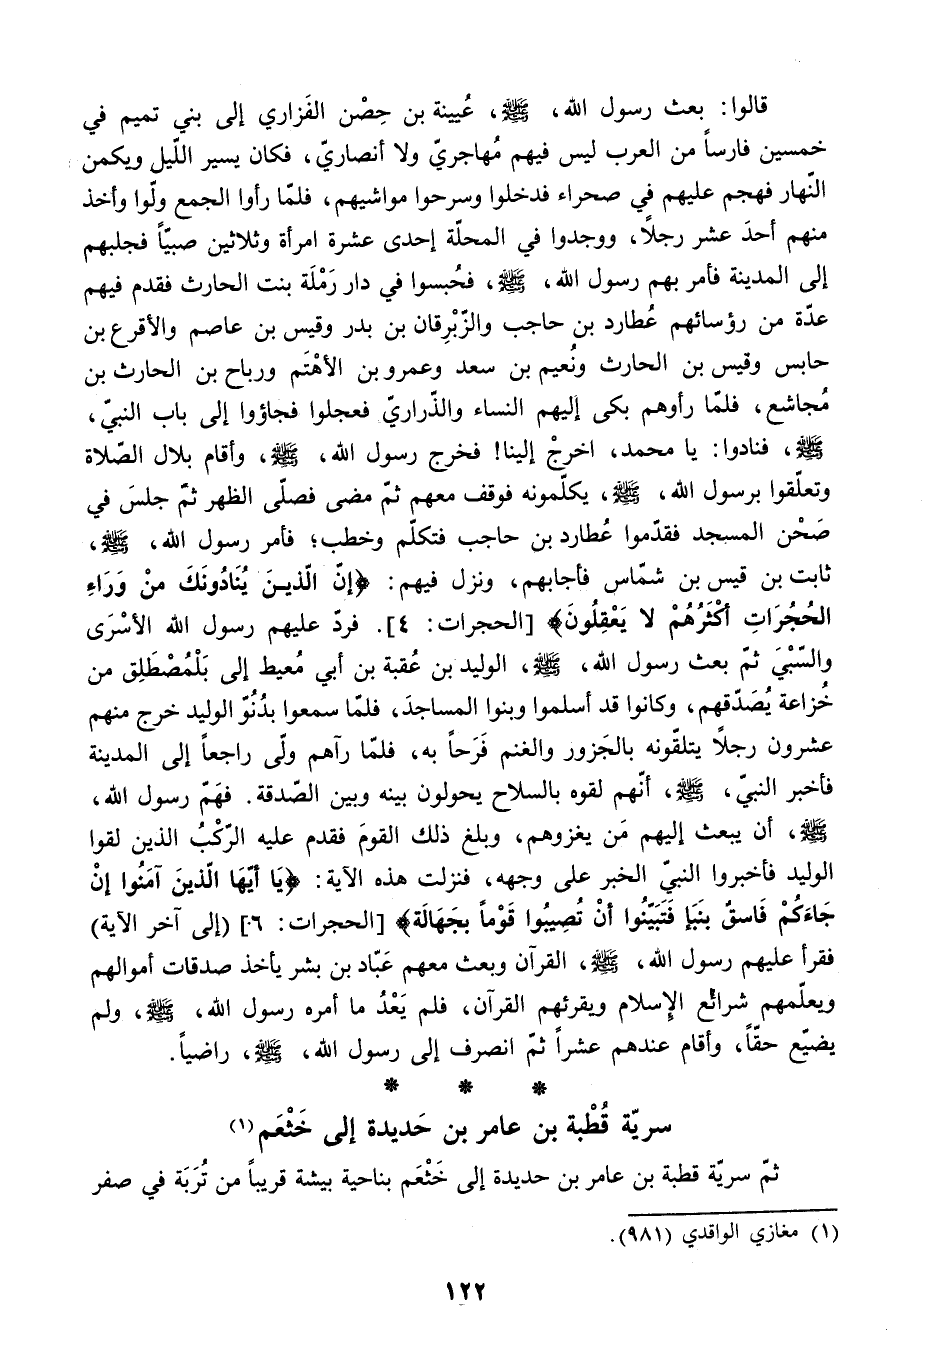 قالوا: بعث رسول الله، ﷺ، عُيينة بن حِصْن الفَزاري إلى بني تميم في
خمسين فارساً من العرب ليس فيهم مُهاجريّ ولا أنصاريّ، فكان يسير اللّيل ويكمن
النّهار فهجم عليهم في صحراء فدخلوا وسرحوا مواشيهم، فلمّا رأوا الجمع ولّوا وأخذ
منهم أحدَ عشر رجلاً، ووجدوا في المحلّة إحدى عشرة امرأة وثلاثين صبيّاً فجلبهم
إلى المدينة فأمر بهم رسول الله، ﷺ، فحُبسوا في دار رَمْلَة بنت الحارث فقدم فيهم
عدّة من رؤسائهم عُطارد بن حاجب والزّبْرِقان بن بدر وقيس بن عاصم والأقرع بن
حابس وقيس بن الحارث ونُعيم بن سعد وعمرو بن الأهْتَم ورباح بن الحارث بن
مُجاشع، فلمّا رأوهم بكى إليهم النساء والذّراريّ فعجلوا فجاؤوا إلى باب النبيّ،
ﷺ، فنادوا: يا محمد، اخرجْ إلينا! فخرج رسول الله، ﷺ، وأقام بلال الصّلاة
وتعلّقوا برسول الله، ﷺ، يكلّمونه فوقف معهم ثمّ مضى فصلّى الظهر ثمّ جلسَ في
صَحْن المسجد فقدّموا عُطارد بن حاجب فتكلّم وخطب؛ فأمر رسول الله، ﷺ،
ثابت بن قيس بن شمّاس فأجابهم، ونزل فيهم: ﴿إنّ الّذينَ يُنَادُونَكَ منْ وَرَاءِ
الحُجُرَاتِ أكْثَرُهُمْ لا يَعْقِلُونَ﴾ [الحجرات: ٤]. فردّ عليهم رسول الله الأسْرَى
والسّبْيَ ثمّ بعث رسول الله، ﷺ، الوليد بن عُقبة بن أبي مُعيط إلى بَلْمُصْطَلِق من
خُزاعة يُصَدّقهم، وكانوا قد أسلموا وبنوا المساجدَ، فلمّا سمعوا بدُنُوّ الوليد خرج منهم
عشرون رجلاً يتلقّونه بالجَزور والغنم فَرَحاً به، فلمّا رآهم ولّى راجعاً إلى المدينة
فأخبر النبيّ، ﷺ، أنّهم لقوه بالسلاح يحولون بينه وبين الصّدقة. فهَمّ رسول الله،
ﷺ، أن يبعث إليهم مَن يغزوهم، وبلغ ذلك القومَ فقدم عليه الرّكْبُ الذين لقوا
الوليد فأخبروا النبيّ الخبر على وجهه، فنزلت هذه الآية: ﴿يَا أيّهَا الّذينَ آمَنُوا إنْ
جَاءَكُمْ فَاسقٌ بنَبَإ فَتَبَيّنُوا أنْ تُصِيبُوا قَوْماً بجَهَالَة﴾ [الحجرات: ٦] (إلى آخر الآية)
فقرأ عليهم رسول الله، ﷺ، القرآن وبعث معهم عَبّاد بن بشر يأخذ صدقات أموالهم
ويعلّمهم شرائع الإسلام ويقرئهم القرآن، فلم يَعْدُ ما أمره رسول الله، ﷺ، ولم
يضيّع حقّاً، وأقام عندهم عشراً ثمّ انصرف إلى رسول الله، ﷺ، راضياً.
* * *
سريّة قُطْبة بن عامر بن حَديدة إلى خَثْعَم(١)
ثمّ سريّة قطبة بن عامر بن حديدة إلى خَثْعَم بناحية بيشة قريباً من تُرَبَة في صفر
(١) مغازي الواقدي (٩٨١).
١٢٢